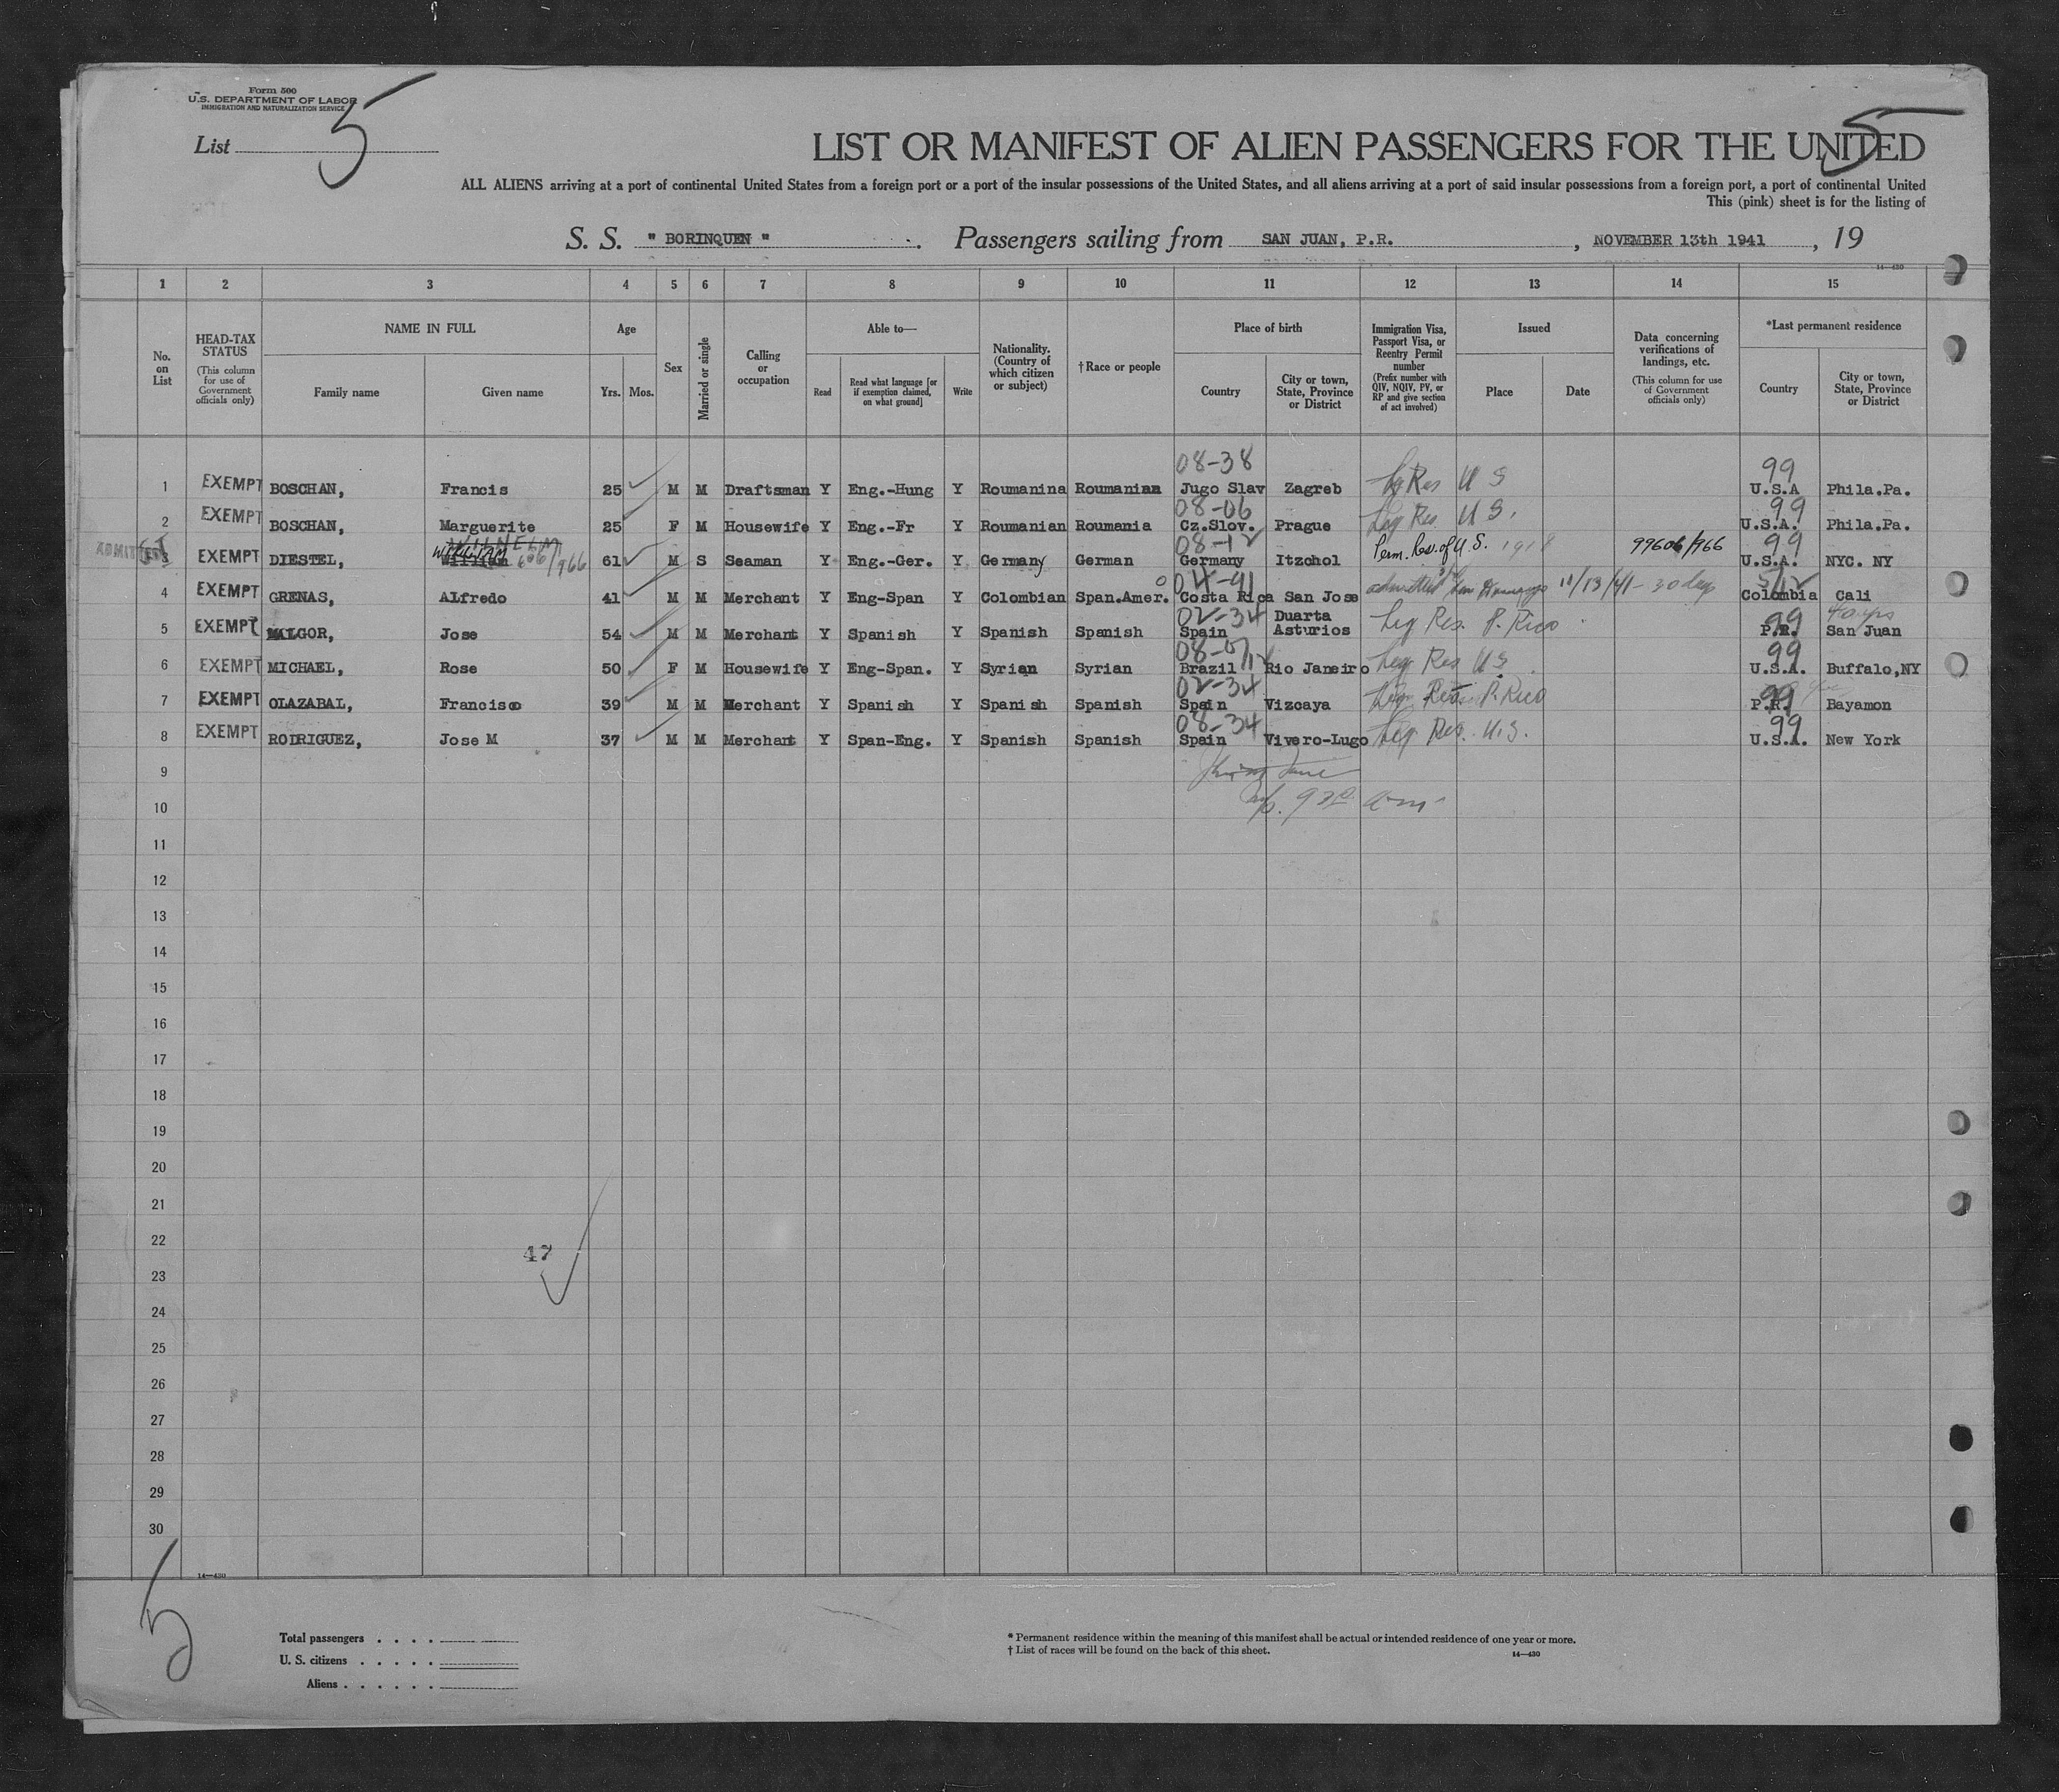 Form 500
U.S. DEPARTMENT OF LABOR
IMMIGRATION AND NATURALIZATION SERVICE
List 5
5
LIST OR MANIFEST OF ALIEN PASSENGERS FOR THE UNITED
ALL ALIENS arriving at a port of continental United States from a foreign port or a port of the insular possessions of the United States, and all aliens arriving at a port of said insular possessions from a foreign port, a port of continental United
This (pink) sheet is for the listing of
S. S. " BORINQUEN " . Passengers sailing from SAN JUAN, P.R. , NOVEMBER 13th 1941 , 19
14—430
1 2 3 4 5 6 7 8 9 10 11 12 13 14 15
No. on List
HEAD-TAX STATUS (This column for use of Government officials only)
NAME IN FULL
Family name Given name
Age
Yrs. Mos.
Sex
Married or single
Calling or occupation
Able to—
Read Read what language [or if exemption claimed, on what ground] Write
Nationality. (Country of which citizen or subject)
†Race or people
Place of birth
Country City or town, State, Province or District
Immigration Visa, Passport Visa, or Reentry Permit number (Prefix number with QIV, NQIV, PV, or RP and give section of act involved)
Issued
Place Date
Data concerning verifications of landings, etc. (This column for use of Government officials only)
*Last permanent residence
Country City or town, State, Province or District
08-38 99
1 EXEMPT BOSCHAN, Francis 25 M M Draftsman Y Eng.-Hung Y Roumanina Roumanian Jugo Slav Zagreb Leg Res U S U.S.A Phila.Pa.
08-06 99
2 EXEMPT BOSCHAN, Marguerite 25 F M Housewife Y Eng.-Fr Y Roumanian Roumania Cz.Slov. Prague Leg Res. U S. U.S.A. Phila.Pa.
WILHELM 08-12 99
ADMITTED 3 EXEMPT DIESTEL, William 606/966 61 M S Seaman Y Eng.-Ger. Y Germany German Germany Itzchol Perm. Res. of U.S. 1918 99606/966 U.S.A. NYC. NY
04-41 5/12
4 EXEMPT GRENAS, Alfredo 41 M M Merchant Y Eng-Span Y Colombian Span.Amer. Costa Rica San Jose admitted 11/13/41 - 30 days Colombia Cali
02-34 Duarta 99
5 EXEMPT MALGOR, Jose 54 M M Merchant Y Spanish Y Spanish Spanish Spain Asturios Leg Res. P. Rico P.R. San Juan
08-07/12 99
6 EXEMPT MICHAEL, Rose 50 F M Housewife Y Eng-Span. Y Syrian Syrian Brazil Rio Janeiro Leg Res U.S. U.S.A. Buffalo,NY
02-34 99
7 EXEMPT OLAZABAL, Francisco 39 M M Merchant Y Spanish Y Spanish Spanish Spain Vizcaya Leg Res. P. Rico P.R. Bayamon
08-34 99
8 EXEMPT RODRIGUEZ, Jose M 37 M M Merchant Y Span-Eng. Y Spanish Spanish Spain Vivero-Lugo Leg Res. U.S. U.S.A. New York
9
10
11
12
13
14
15
16
17
18
19
20
21
22
47
23
24
25
26
27
28
29
30
14—430
5
Total passengers . . . .
U. S. citizens . . . . .
Aliens . . . . . .
* Permanent residence within the meaning of this manifest shall be actual or intended residence of one year or more.
† List of races will be found on the back of this sheet.
14—430